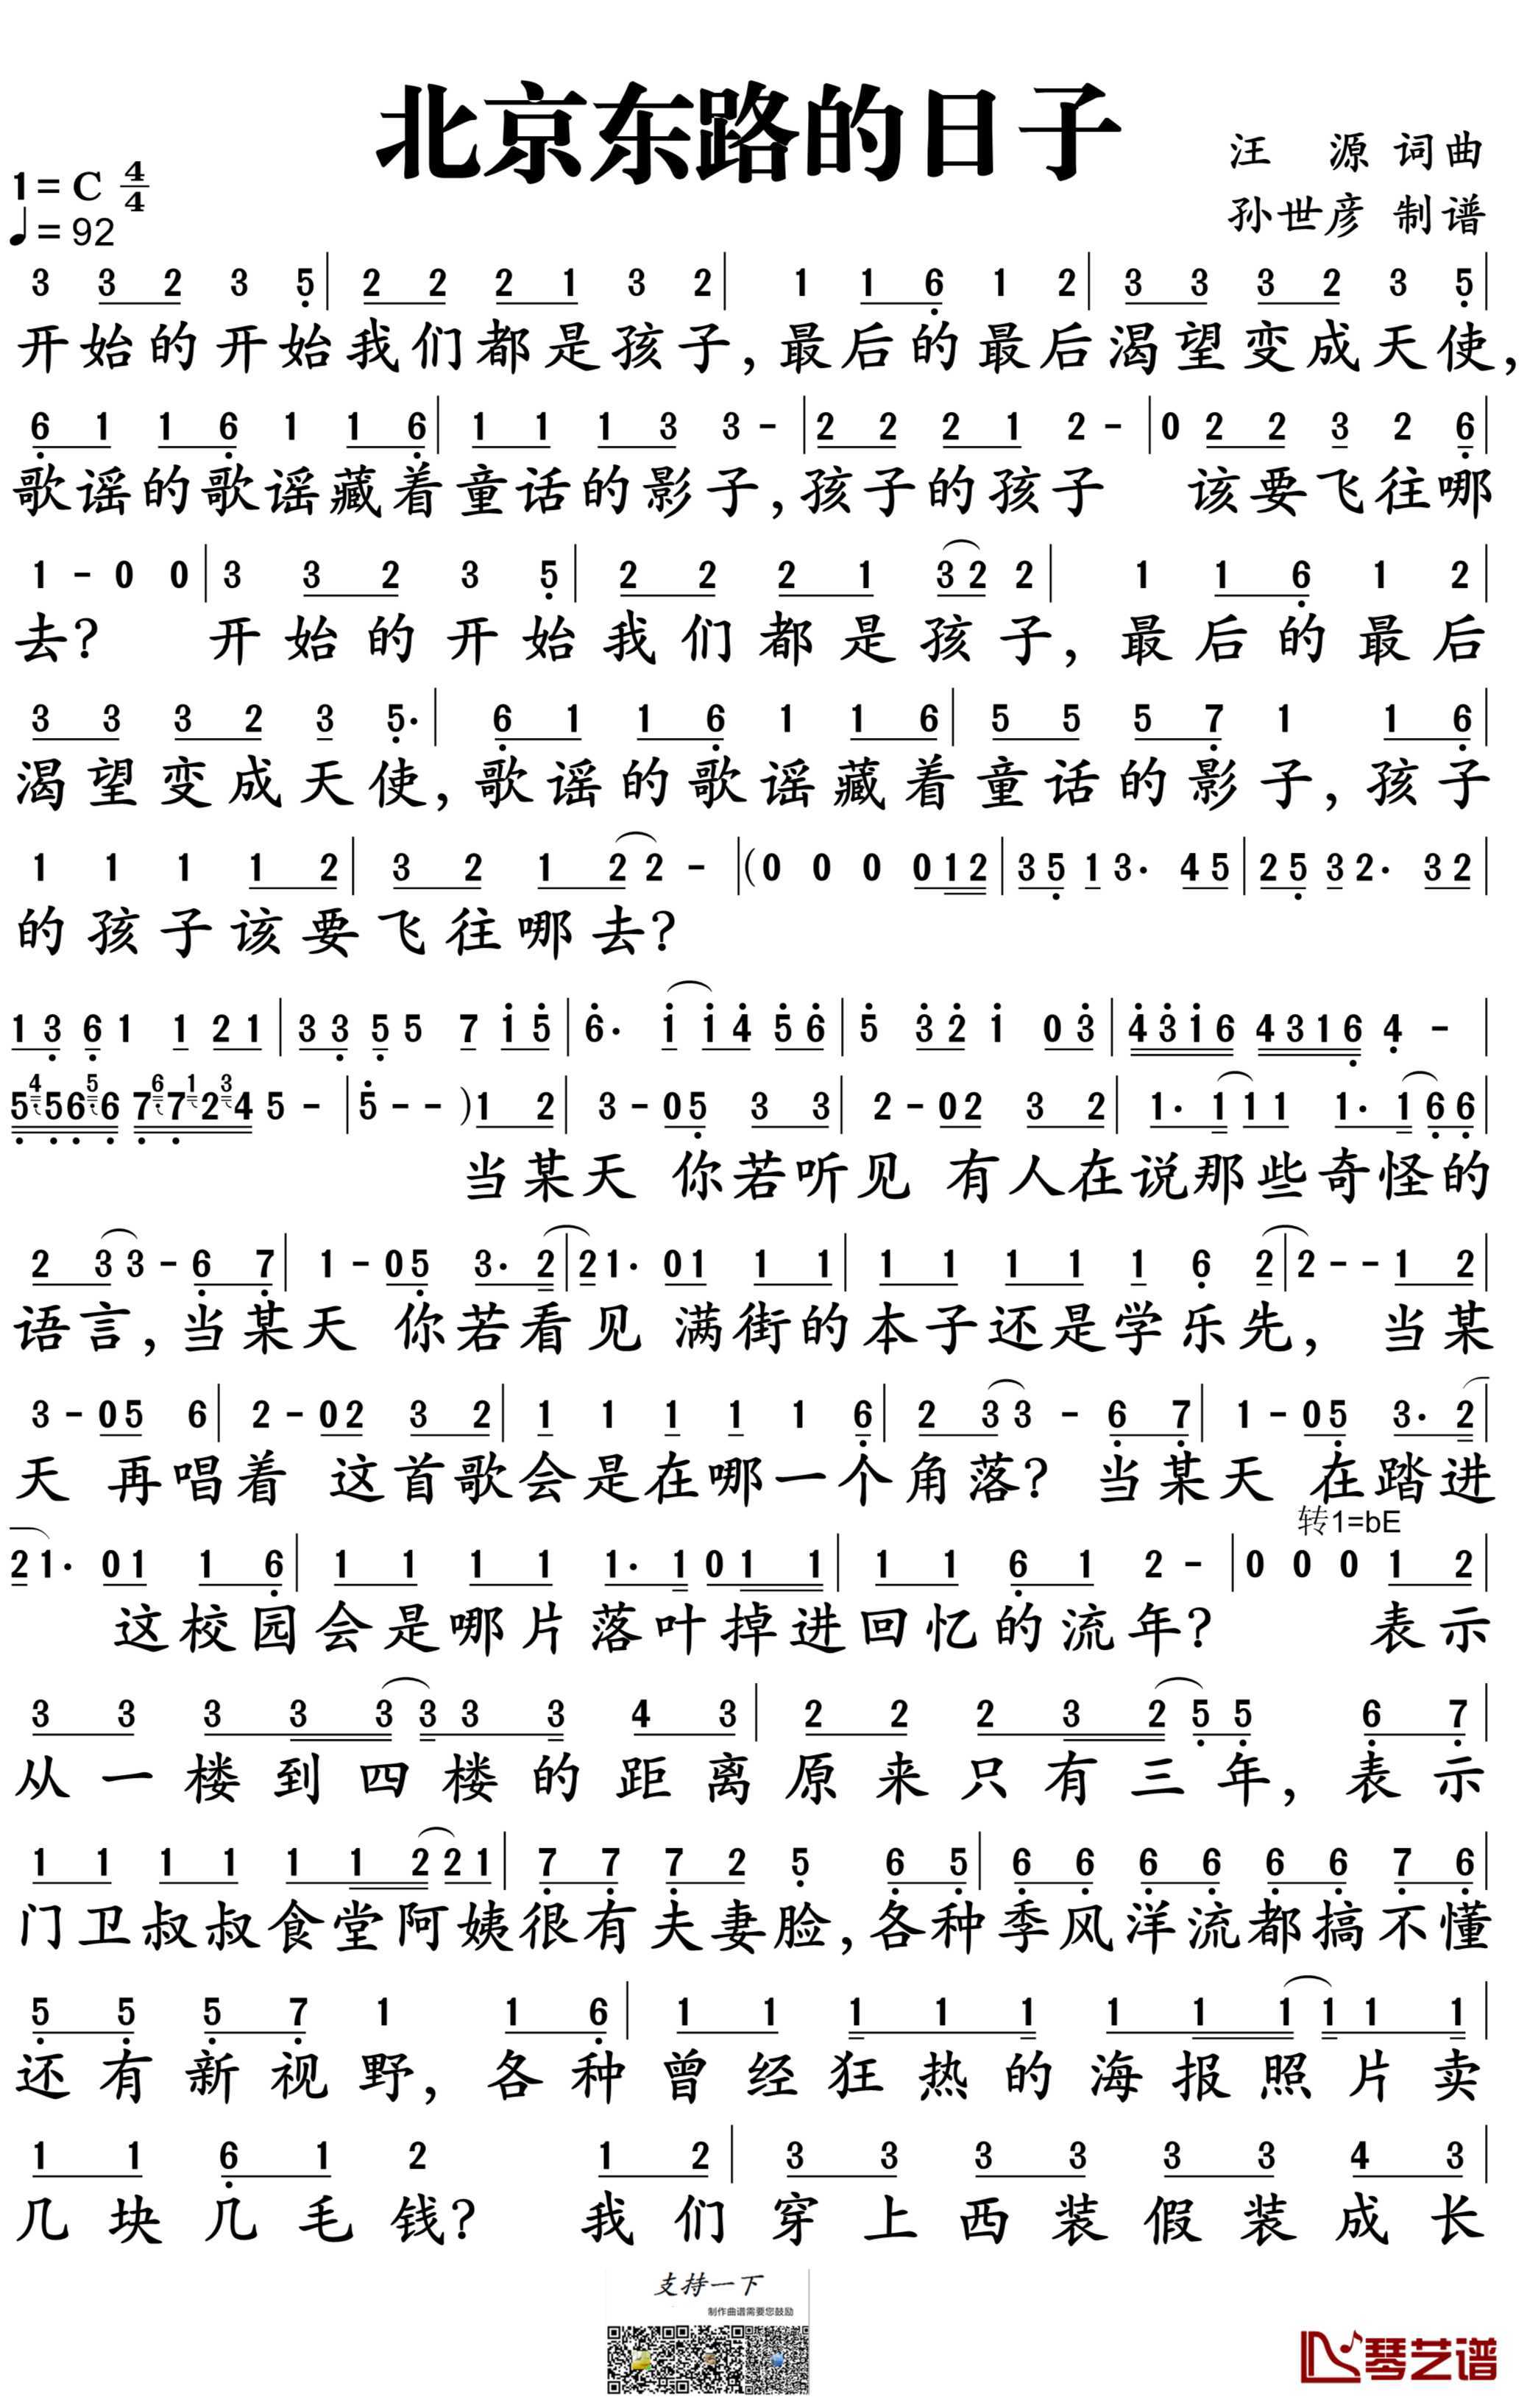 北京东路的日子
汪 源 词曲
孙世彦 制谱
1=C 4/4
♩=92
3 3 2 3 5| 2 2 2 1 3 2| 1 1 6 1 2| 3 3 3 2 3 5|
开始的开始我们都是孩子,最后的最后渴望变成天使,
6 1 1 6 1 1 6| 1 1 1 3 3 -| 2 2 2 1 2 -| 0 2 2 3 2 6|
歌谣的歌谣藏着童话的影子,孩子的孩子 该要飞往哪
1 - 0 0| 3 3 2 3 5| 2 2 2 1 3 2 2| 1 1 6 1 2|
去? 开始的开始我们都是孩子,最后的最后
3 3 3 2 3 5·| 6 1 1 6 1 1 6| 5 5 5 7 1 1 6|
渴望变成天使,歌谣的歌谣藏着童话的影子,孩子
1 1 1 1 2| 3 2 1 2 2 -|(0 0 0 0 1 2| 3 5 1 3· 4 5| 2 5 3 2· 3 2|
的孩子该要飞往哪去?
1 3 6 1 1 2 1| 3 3 5 5 7 1 5| 6· 1 1 4 5 6| 5 3 2 1 0 3| 4 3 1 6 4 3 1 6 4 -|
5 4 5 6 5 6 7 6 7 1 2 3 4 5 -| 5 - - )1 2| 3 - 0 5 3 3| 2 - 0 2 3 2| 1· 1 1 1 1· 1 6 6|
当某天 你若听见 有人在说那些奇怪的
2 3 3 - 6 7| 1 - 0 5 3· 2| 2 1· 0 1 1 1| 1 1 1 1 1 6 2| 2 - - 1 2|
语言,当某天 你若看见 满街的本子还是学乐先, 当某
3 - 0 5 6| 2 - 0 2 3 2| 1 1 1 1 1 6| 2 3 3 - 6 7| 1 - 0 5 3· 2|
天 再唱着 这首歌会是在哪一个角落? 当某天 在踏进
转1=bE
2 1· 0 1 1 6| 1 1 1 1 1· 1 0 1 1| 1 1 6 1 2 -| 0 0 0 1 2|
这校园会是哪片落叶掉进回忆的流年? 表示
3 3 3 3 3 3 3 3 4 3| 2 2 2 3 2 5 5 6 7|
从一楼到四楼的距离原来只有三年,表示
1 1 1 1 1 1 2 2 1| 7 7 7 2 5 6 5| 6 6 6 6 6 6 7 6|
门卫叔叔食堂阿姨很有夫妻脸,各种季风洋流都搞不懂
5 5 5 7 1 1 6| 1 1 1 1 1 1 1 1 1 1 1|
还有新视野,各种曾经狂热的海报照片卖
1 1 6 1 2 1 2| 3 3 3 3 3 3 4 3|
几块几毛钱? 我们穿上西装假装成长
支持一下
制作曲谱需要您鼓励
琴艺谱